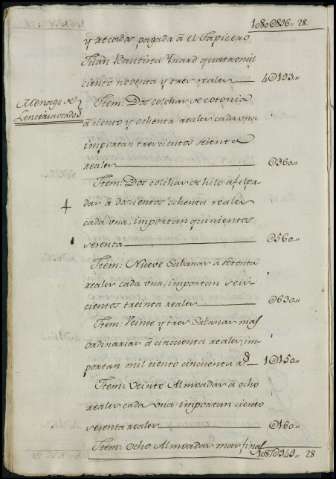 1080@896.. 28
y recoidas pagada à el Tapizero
Juan Bautista quatro mil
ciento noventa y tres reales 4@193..
Menage de
Lenceria usada
Item: Dos colchas de cotonia
à ciento y ochenta reales cada una
importan trescientos sesenta
reales @360..
Item: Dos colchas de hilo afelpa
das à doscientos ochenta reales
cada una, importan quinientos
sesenta @560..
Item: Nueve Savanas à setenta
reales cada una, importan seis
cientos treinta reales @630..
Item: Veinte y tres Savanas mas
ordinarias à cinquenta reales, im
portan mil ciento cinquenta 1@150..
Item: Veinte Almoadas à ocho
reales cada una importan ciento
sesenta reales @160..
Item: Ocho Almoadas mas finas
28